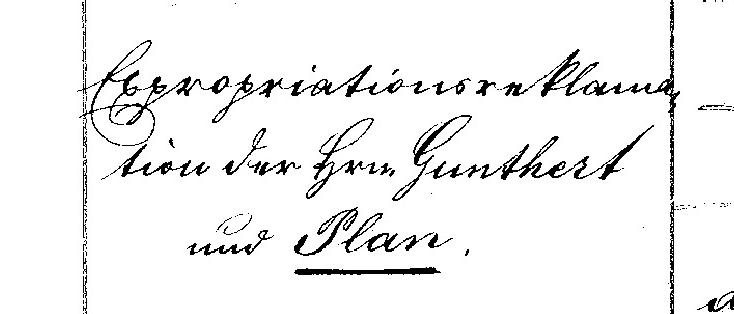 Expropriationsreklama-
tion der Hrn. Gunthert
und Plan.